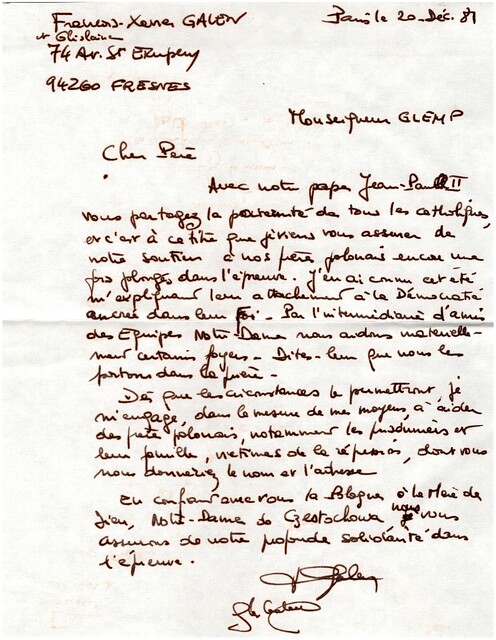 Francois-Xavier GALEN
et Ghislaine
74 Av. St Exupery
94260 FRESNES
Paris le 20-Déc. 81
Monseigneur GLEMP
Cher Père
Avec notre pape Jean-Paul II
vous partagez la paternité de tous les catholiques,
et c'est à ce titre que je viens vous assurer de
notre soutien à nos frères polonais encore une
fois plongés dans l'épreuve. J'en ai connu cet été
m'expliquant leur attachement à la Démocratie
ancrée dans leur Foi. Par l'intermédiaire d'amis
des Equipes Notre-Dame nous aidons matérielle-
ment certains foyers. Dites-leur que nous les
portons dans la prière.
Dès que les circonstances le permettront, je
m'engage, dans la mesure de mes moyens, à aider
des frères polonais, notamment les prisonniers et
leur famille, victimes de la répression, dont vous
nous donneriez le nom et l'adresse
En confiant avec vous la Pologne à la Mère de
Dieu, Notre-Dame de Czestochowa nous vous
assurons de notre profonde solidarité dans
l'épreuve.
Galen